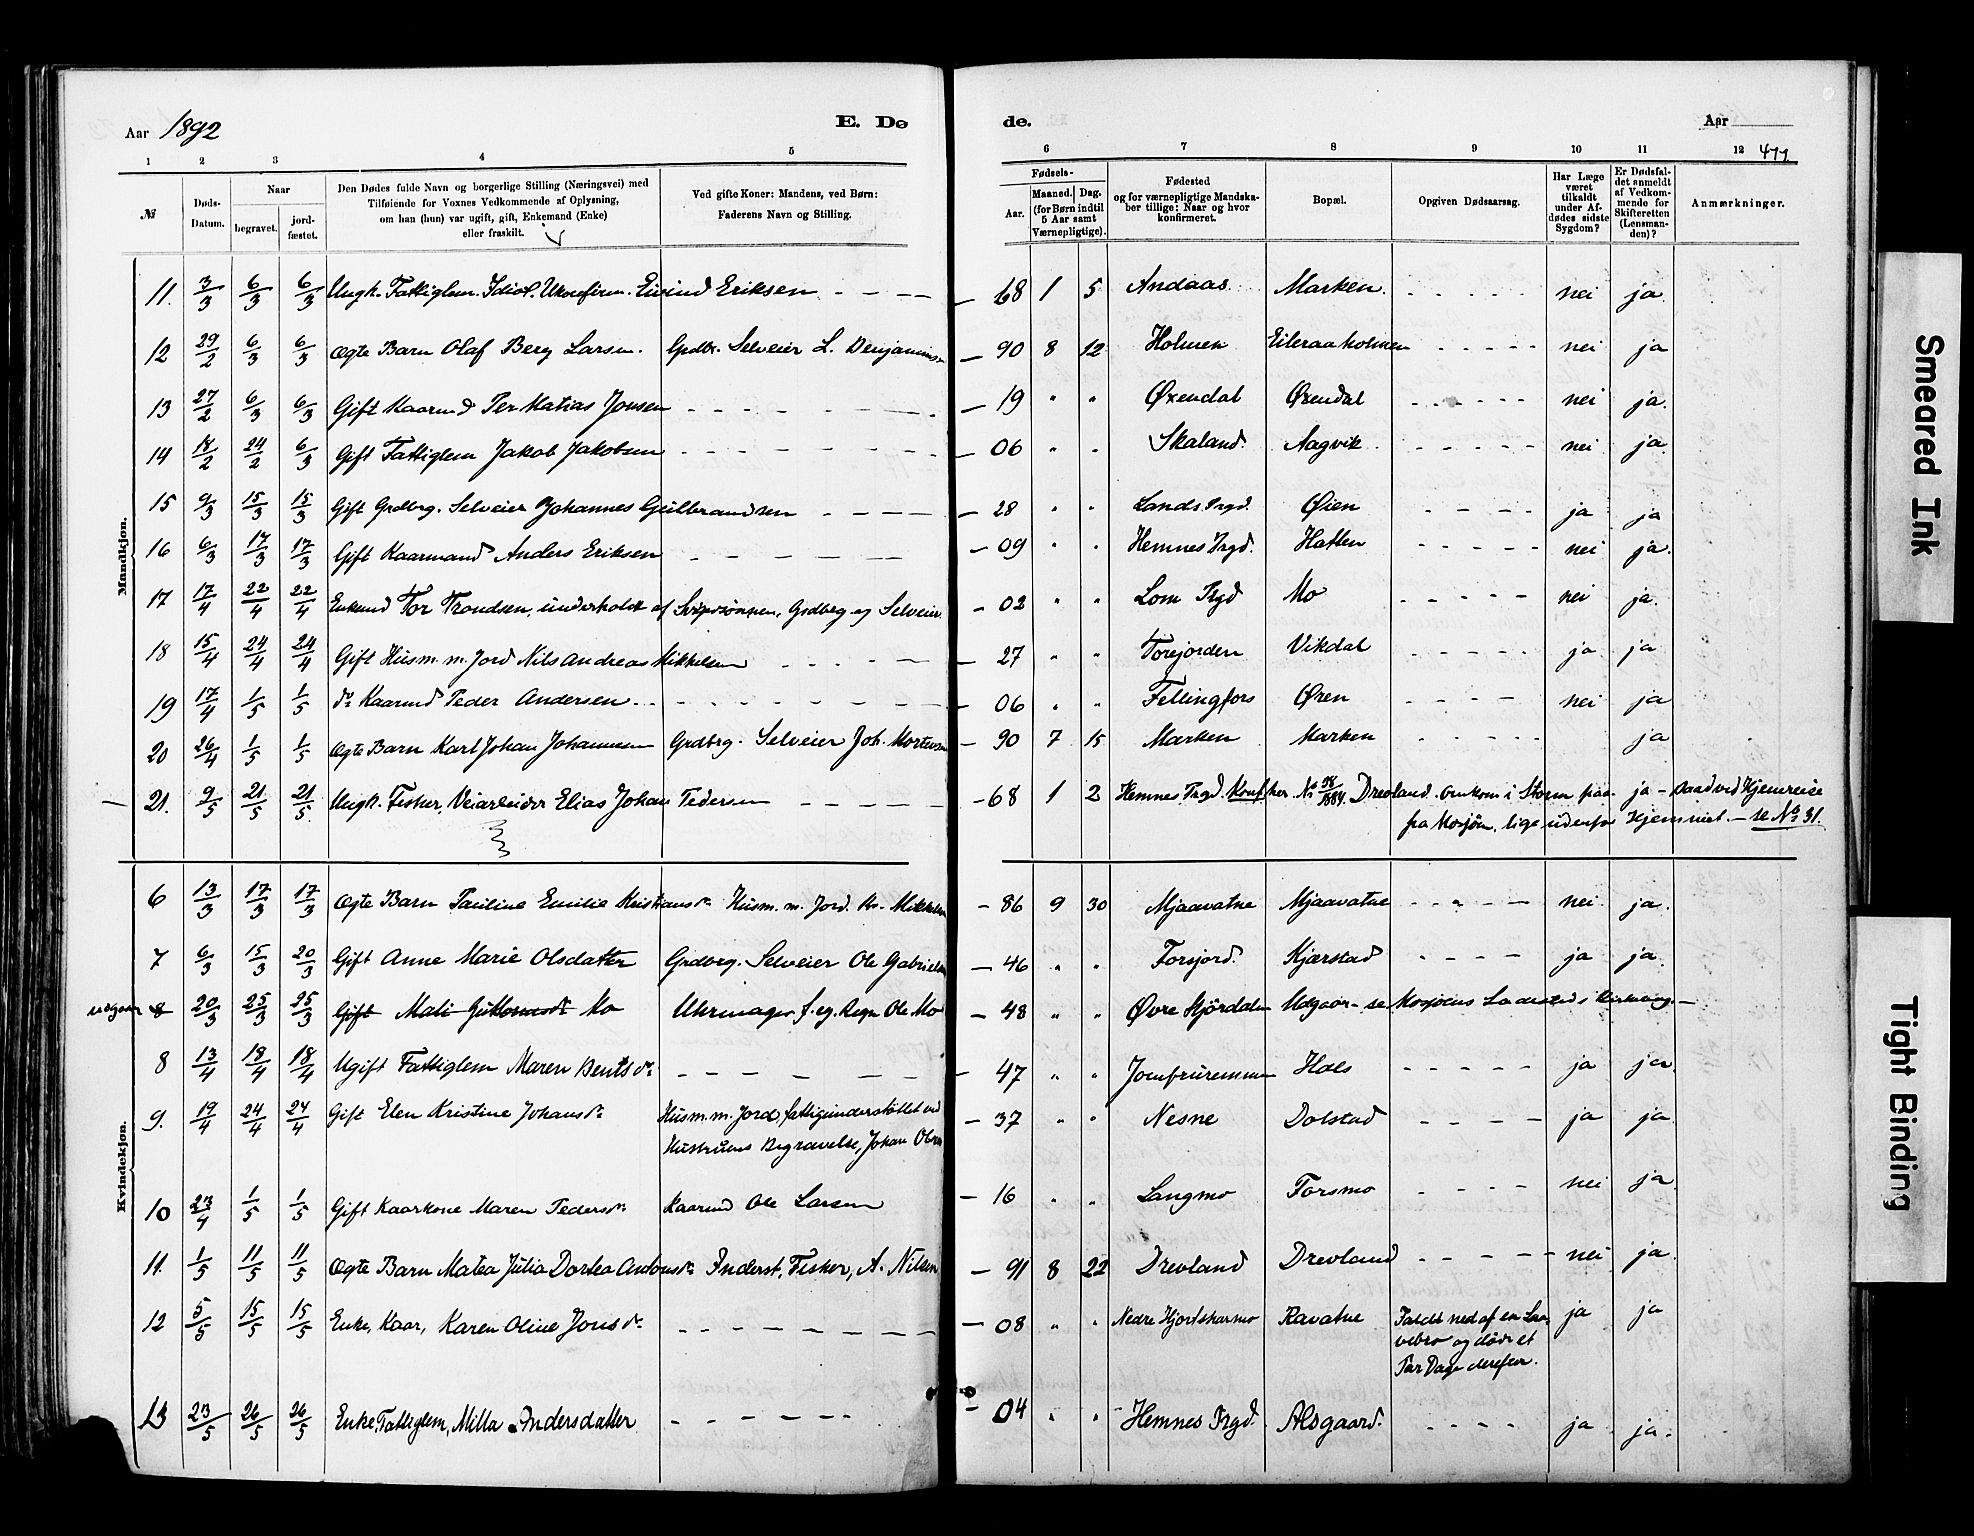 Aar 1892
E. Dø
de.
Aar
1 2 3 4 5
6 7 8 9 10 11 12 477
№ Døds-Datum. Naar begravet. jord-fæstet. Den Dødes fulde Navn og borgerlige Stilling (Næringsvei) med Tilføiende for Voxnes Vedkommende af Oplysning, om han (hun) var ugift, gift, Enkemand (Enke) eller fraskilt. Ved gifte Koner: Mandens, ved Børn: Faderens Navn og Stilling.
Fødsels- Aar. Maaned. Dag. (for Børn indtil 5 Aar samt Værnepligtige). Fødested og for værnepligtige Mandskaber tillige: Naar og hvor konfirmeret. Bopæl. Opgiven Dødsaarsag. Har Læge været tilkaldt under Afdødes sidste Sygdom? Er Dødsfaldet anmeldt af Vedkommende for Skifteretten (Lensmanden)? Anmærkninger.
Mandkjøn.
11. 3/3 6/3 6/3 Ungk. Fattiglem. Idiot. Ukonfirm. Eivind Eriksen - - - - 68 1 5 Andaas Marken. - - - - - nei ja
12 29/2 6/3 6/3 Ægte Barn Olaf Berg Larsen. Grdbr. Selveier L. Benjamins - 90 8 12 Holmen Eileraaholmen - - - - - nei ja
13 27/2 6/3 6/3 Gift Kaarmd Per Matias Jonsen - - - - 19 " " Øxendal Øxendal - - - - - nei ja.
14 18/2 24/2 6/3 Gift Fattiglem Jakob Jakobsen - - - - 06 " " Skaland. Aagvik - - - - - nei ja.
15 9/3 15/3 15/3 Gift Grdbrg. Selveier Johannes Gulbrandsen - - - - 28 " " Lands Prgd. Øien - - - - ja ja
16 6/3 17/3 17/3 Gift Kaarmand Anders Eriksen - - - - 09 " " Hemnes Prgd. Hatten - - - - - nei ja.
17 17/4 22/4 22/4 Enkemd Tor Trondsen, underholdt af Svigersønnen, Grdbrg og Selveier - 02 " " Lom Prgd Mo - - - - - nei ja.
18 15/4 24/4 24/4 Gift Husm. m. Jord Nils Andreas Mikkelsen - - - - 27 " " Torejorden Vikdal - - - - - ja ja
19 17/4 1/5 1/5 do Kaarmd Peder Andersen - - - - 06 " " Fellingfors Øren - - - - nei ja
20 26/4 1/5 1/5 Ægte Barn Karl Johan Johannesen Grdbrg. Selveier Joh. Mortensen - 90 7 15 Marken Marken - - - - - ja
21. 9/5 21/5 21/5 Ungk. Fisker, Veiarbeider Elias Johan Pedersen - - - - 68 1 2 Hemnes Prgd. Konf. her. No 18/1884. Drevland. Omkom i Storm paa - ja - Baad ved Hjemreise
fra Mosjøen, lige udenfor Hjemmet. - se No 31.
Kvindekjøn.
6 13/3 17/3 17/3 Ægte Barn Pauline Emilie Kristiansdr. Husm. m. Jord. Kr. Mikkelsen - 86 9 30 Mjaavatne Mjaavatne - - - - nei ja.
7 6/3 15/3 20/3 Gift Anne Marie Olsdatter Grdbrg. Selveier Ole Gabrielsen - 46 " " Forsjord. Kjærstad - - - - ja ja.
udgaar 8 20/3 25/3 25/3 Gift Mali Guttormsdr. Mo Uhrmager f. eg. Regn Ole Mo - 48 " " Øvre Stjördalen Udgaar - se Mosjøens Ladesteds
8 13/4 18/4 18/4 Ugift Fattiglem Maren Bentsdr. - - - - 47 " " Jomfruremmen Hals - - - - - ja ja.
9. 19/4 24/4 24/4 Gift Elen Kristine Johansdr. Husm. m. Jord, fattigunderstøttet ved - 37 " " Nesne Dolstad - - - - ja ja.
Hustruens Begravelse, Johan Olsen
10 23/4 1/5 1/5 Gift Kaarkone Maren Pedersdr. Kaarmd Ole Larsen - 16 " " Langmo Forsmo - - - - nei ja.
11. 1/5 11/5 11/5 Ægte Barn Matea Julia Dortea Antonsdr. Inderst, Fisker, A. Nilsen - 91 8 22 Drevland Drevland - - - - - nei ja.
12 5/5 15/5 15/5 Enke, Kaar, Karen Oline Jonsdr. - - - - 08 " " Nedre Hjortskarmo Ravatne Faldt ned af en Laa- ja ja
vebro og døde et
Par Dage derefter.
13 23/5 26/5 26/5 Enke, Fattiglem, Milla Andersdatter - - - - 04 " " Hemnes Prgd. Alsgaard. - - - - ja ja.
Smeared Ink
Tight Binding